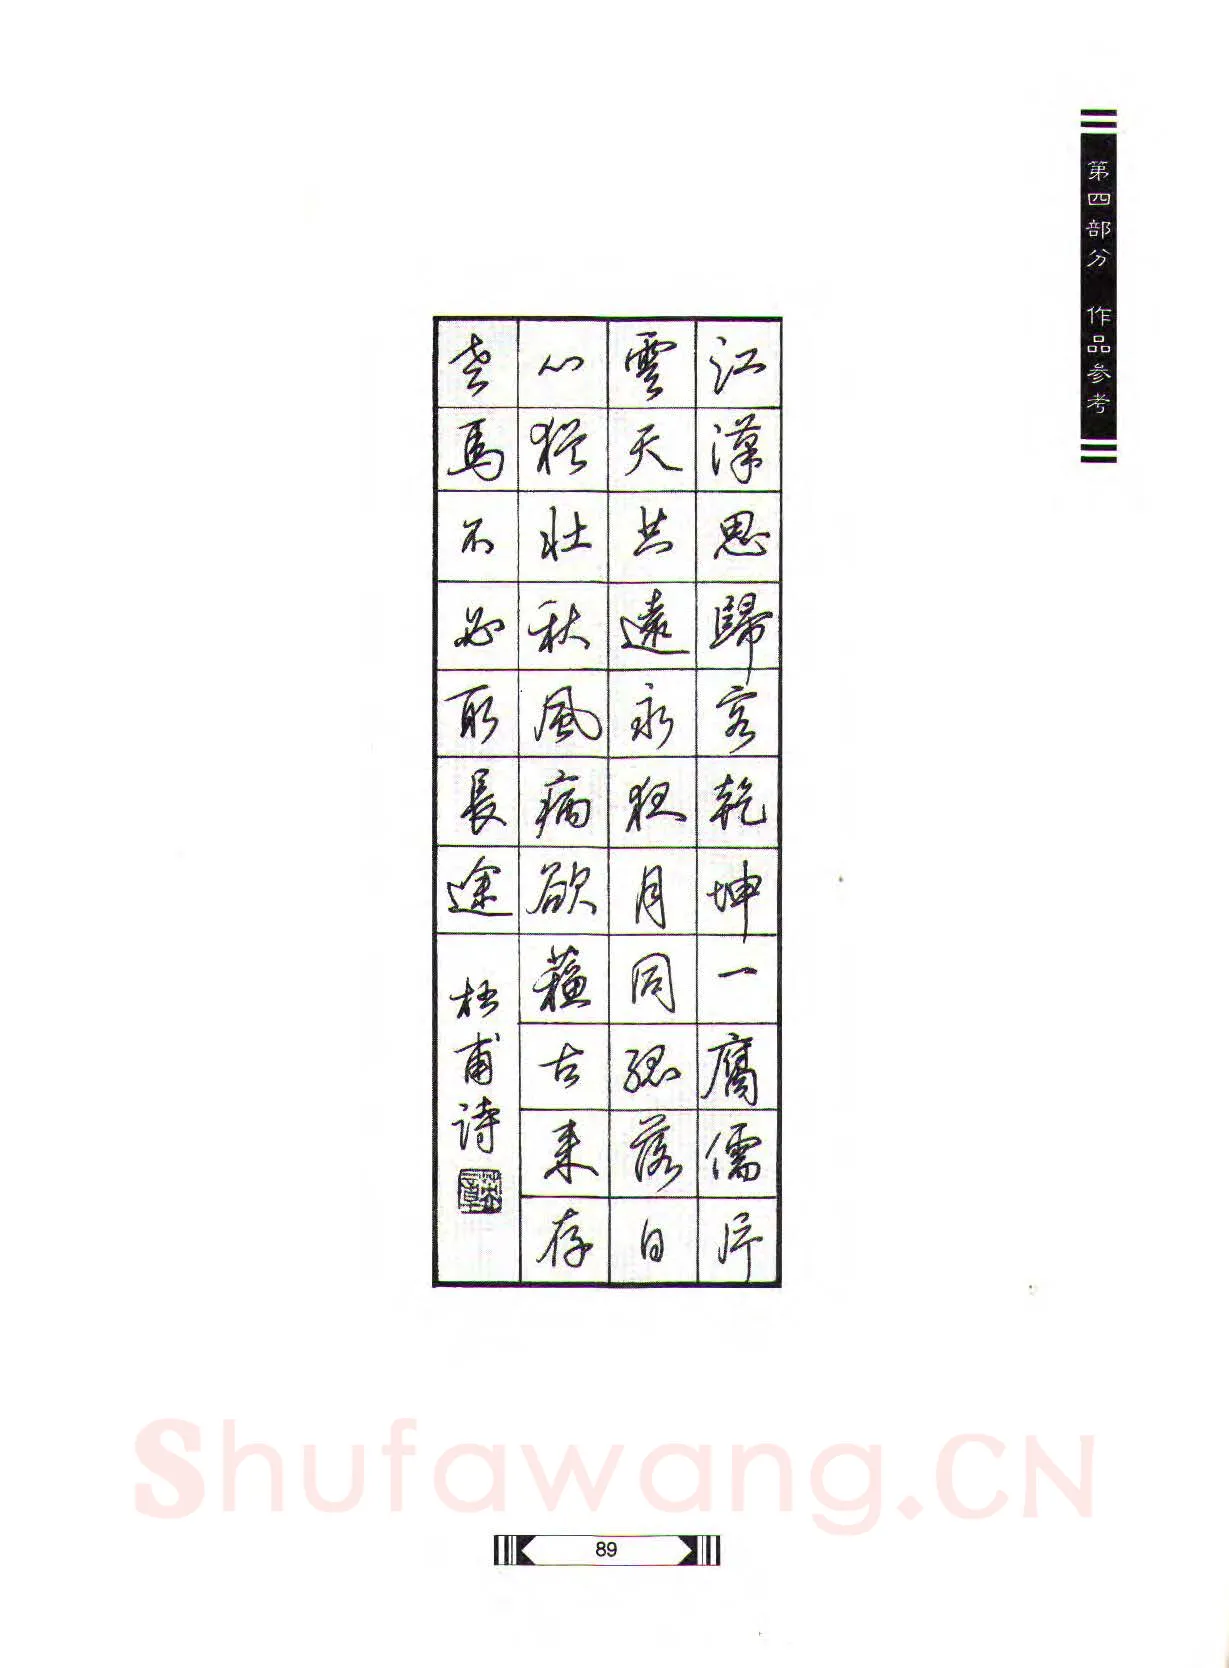 第四部分 作品参考
江漢思歸客乾坤一腐儒片
雲天共遠永夜月同孤落日
心猶壯秋風病欲蘇古來存
老馬不必取長途
杜甫詩
Shufawang.CN
89